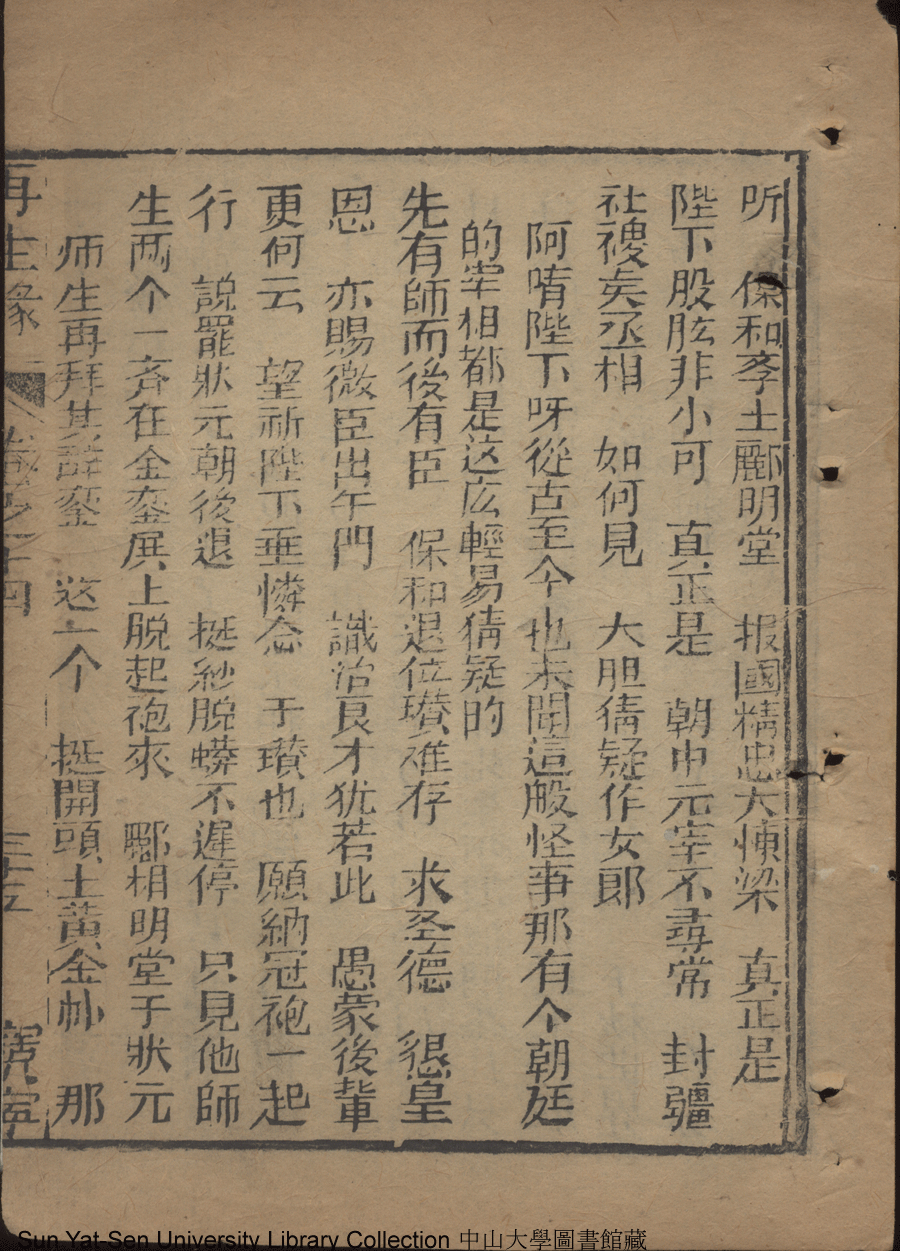 听　保和李士酈明堂　报國精忠大悚梁　真正是
陛下股肱非小可　真正是　朝中元宰不尋常　封疆
社稷矣丞相　如何見　大胆猜疑作女郎
阿唷陛下呀從古至今也未聞這般怪事那有个朝廷
的宰相都是这庅輕易猜疑的
先有師而後有臣　保和退位瓚难存　求圣德　懇皇
恩　亦賜微臣出午門　識治良才犹若此　愚蒙後輩
更何云　望祈陛下垂憐念　于瓚也　願納冠袍一起
行　説罷狀元朝後退　挺紗脱蟒不遲停　只見他師
生两个一斉在金銮展上脱起袍來　酈相明堂于狀元
师生再拜其辞銮　这一个　挺開頭上黄金朴　那
再生緣　卷之十四　三十五　寳寕
Sun Yat-Sen University Library Collection 中山大學圖書館藏